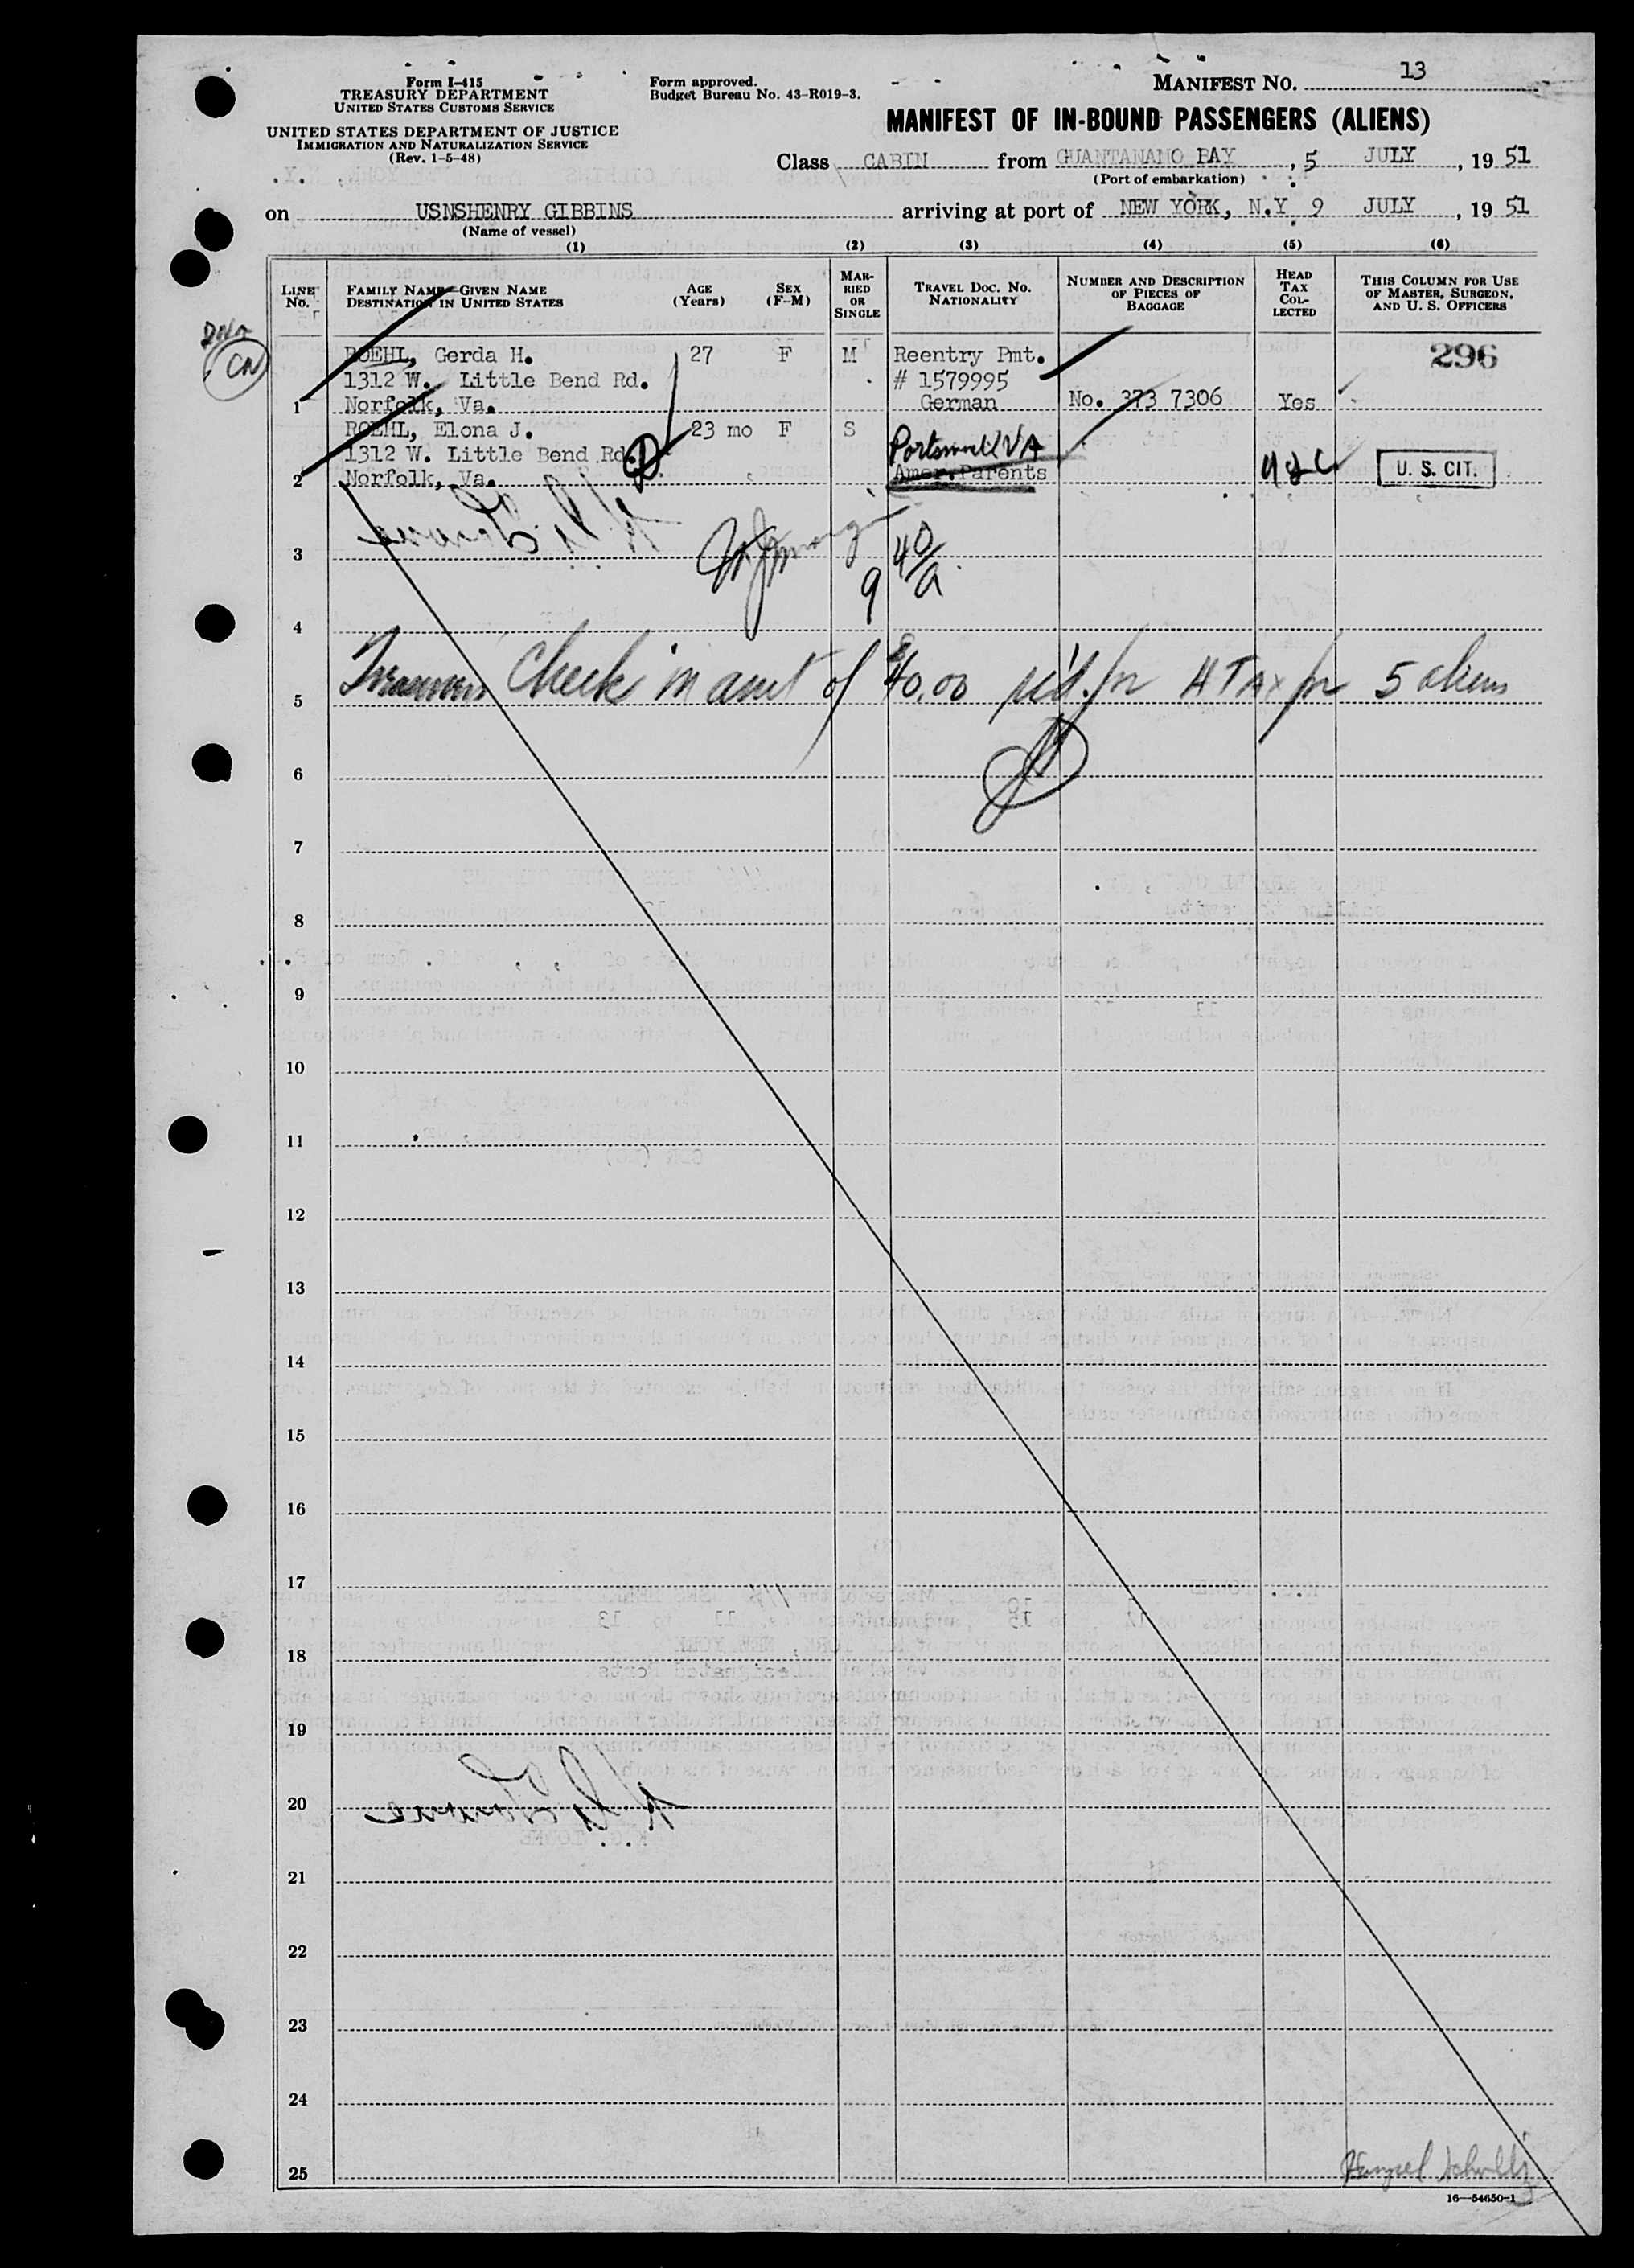 Form I-415
TREASURY DEPARTMENT
UNITED STATES CUSTOMS SERVICE
UNITED STATES DEPARTMENT OF JUSTICE
IMMIGRATION AND NATURALIZATION SERVICE
(Rev. 1-5-48)
Form approved.
Budget Bureau No. 43-R019-3.
MANIFEST NO. 13
MANIFEST OF IN-BOUND PASSENGERS (ALIENS)
Class CABIN from GUANTANAMO BAY, 5 JULY, 19 51
(Port of embarkation)
on USNSHENRY GIBBINS arriving at port of NEW YORK, N.Y. 9 JULY, 19 51
(Name of vessel)
(1) (2) (3) (4) (5) (6)
LINE No.
FAMILY NAME—GIVEN NAME
DESTINATION IN UNITED STATES
AGE (Years)
SEX (F-M)
MARRIED OR SINGLE
TRAVEL DOC. NO.
NATIONALITY
NUMBER AND DESCRIPTION OF PIECES OF BAGGAGE
HEAD TAX COLLECTED
THIS COLUMN FOR USE OF MASTER, SURGEON, AND U. S. OFFICERS
CN
ROEHL, Gerda H. 27 F M Reentry Pmt. 296
1312 W. Little Bend Rd. # 1579995
1 Norfolk, Va. German No. 373 7306 Yes
ROEHL, Elona J. 23 mo F S Portsmouth VA
1312 W. Little Bend Rd.
2 Norfolk, Va. Amer. Parents USC U. S. CIT.
3
9
4
5 Treasurers Check in amt of $40.00 rec'd. for H Tax for 5 aliens
6
7
8
9
10
11
12
13
14
15
16
17
18
19
20
21
22
23
24
25
16—54650-1